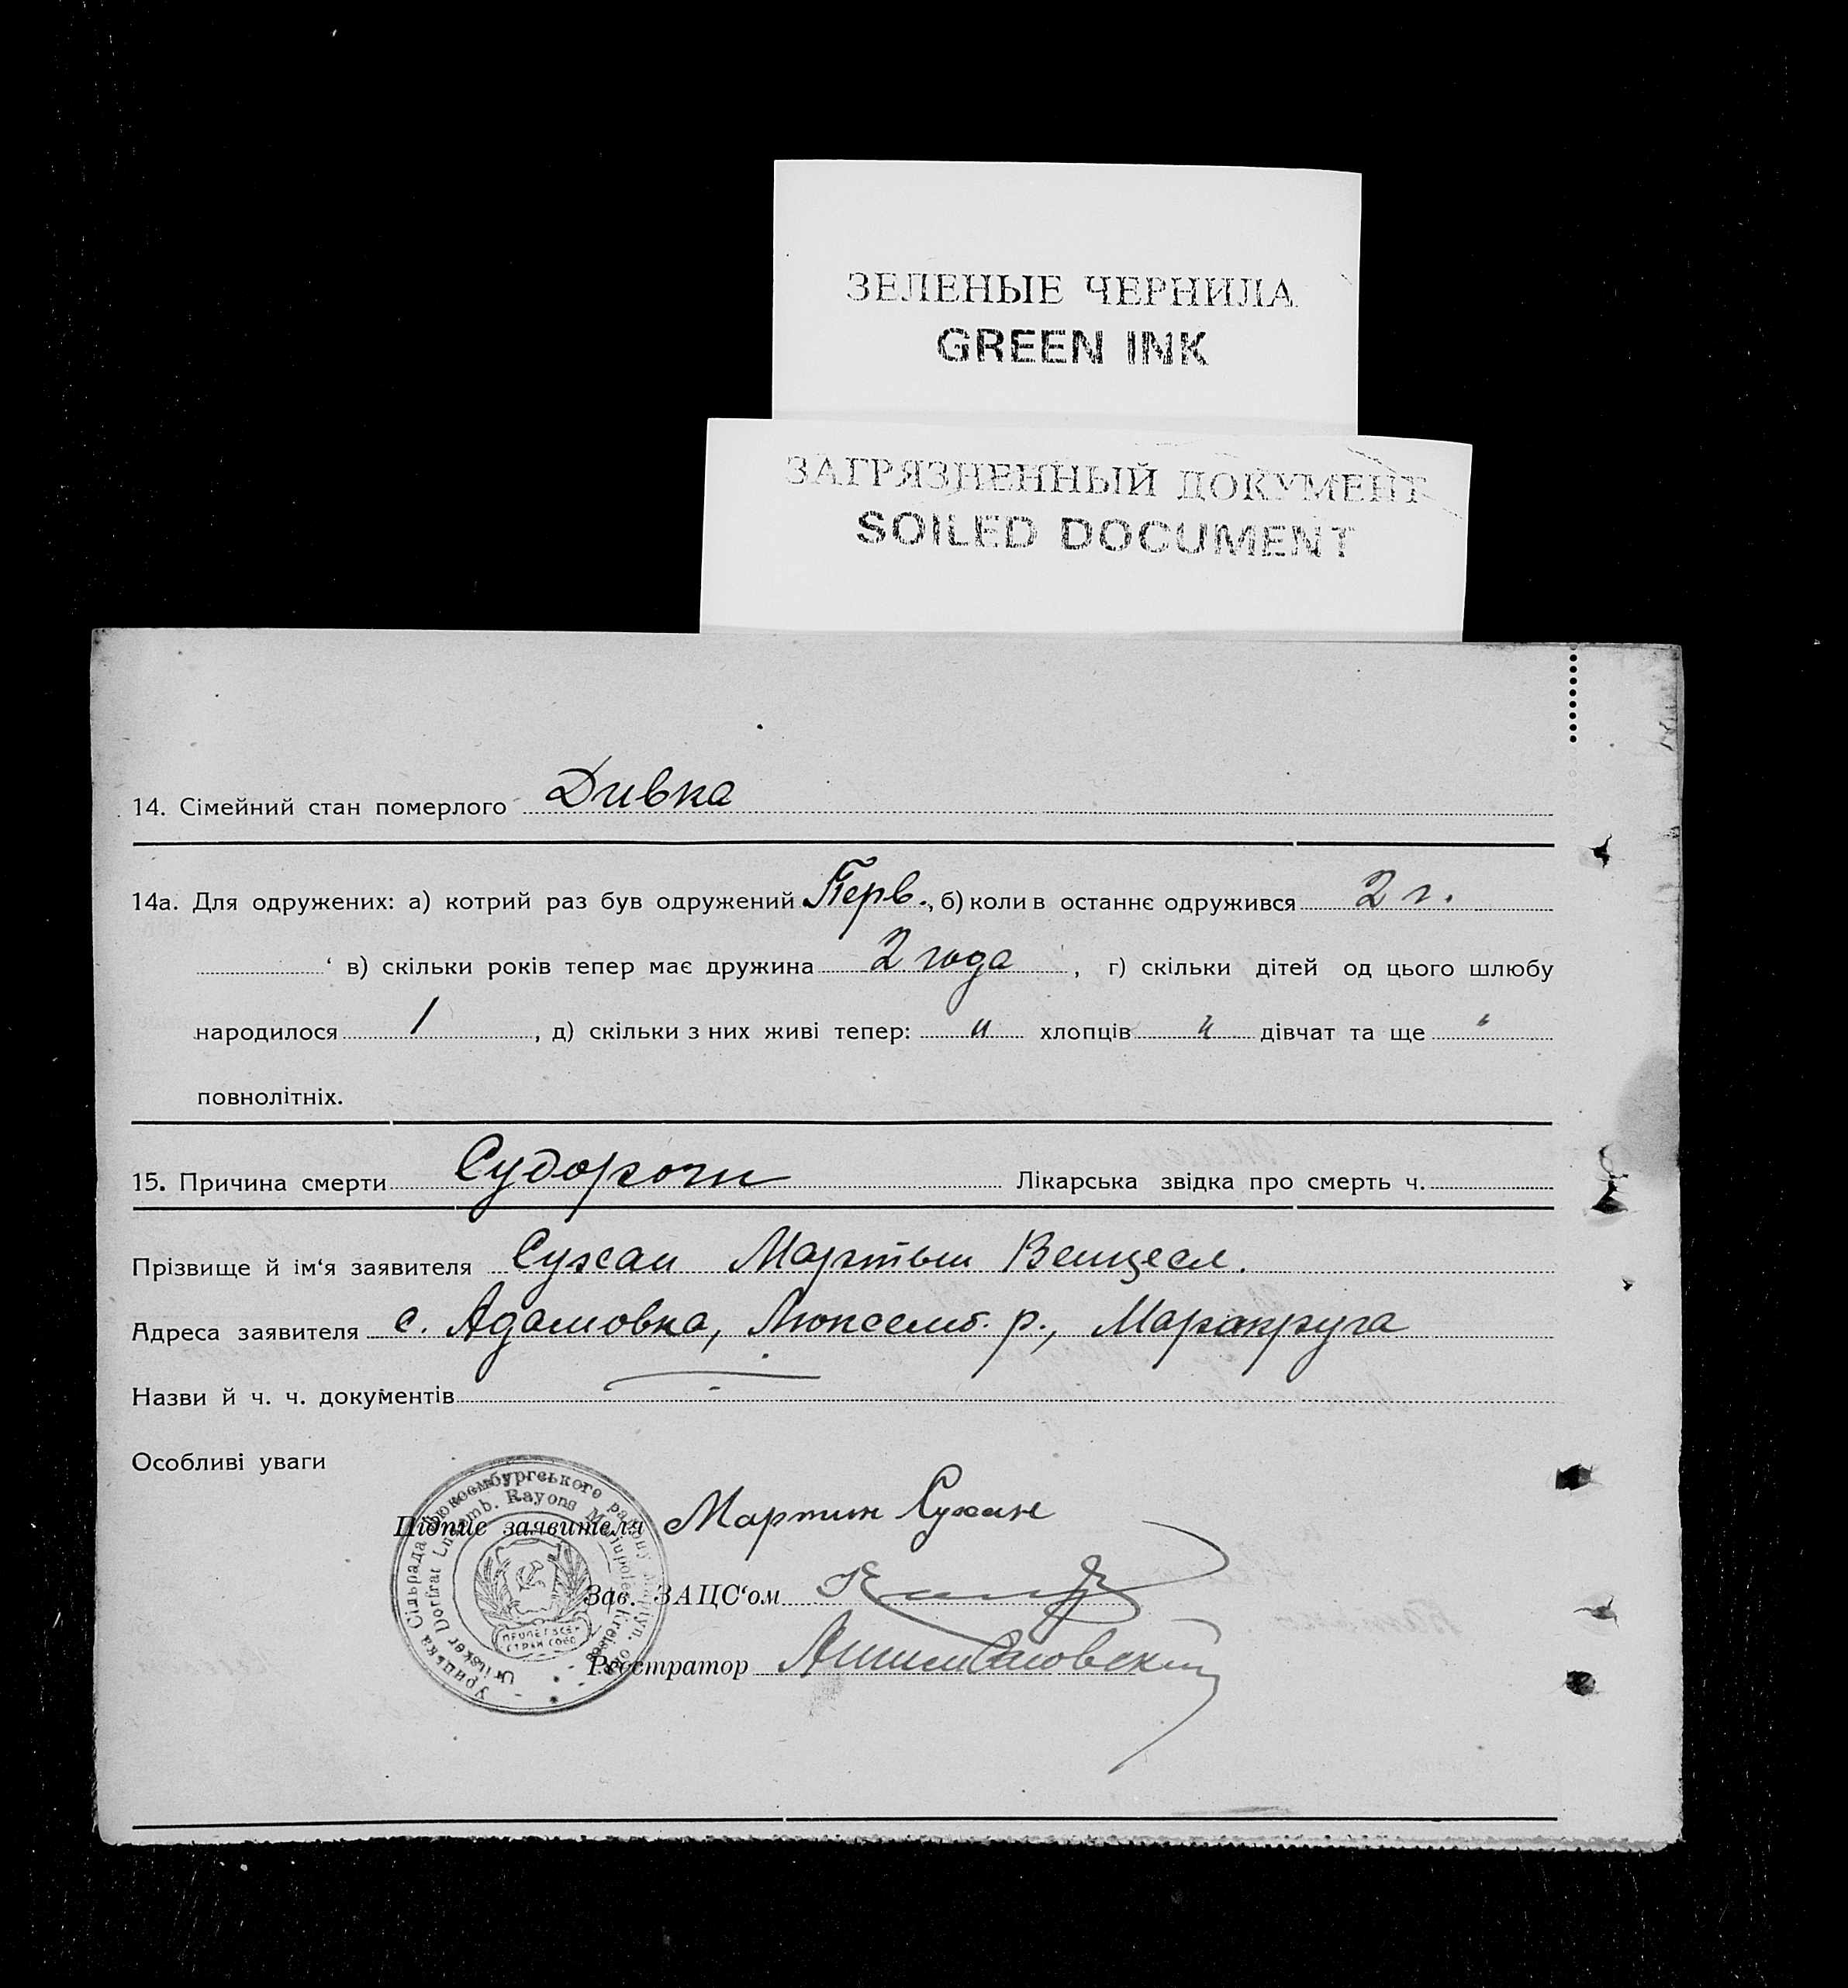 ЗЕЛЕНЫЕ ЧЕРНИЛА
GREEN INK
ЗАГРЯЗНЕННЫЙ ДОКУМЕНТ
SOILED DOCUMENT
14. Сімейний стан померлого Дивка
14а. Для одружених: а) котрий раз був одружений Перв., б) коли в останнє одружився 2 г.
в) скільки років тепер має дружина 2 года, г) скільки дітей од цього шлюбу
народилося 1, д) скільки з них живі тепер: " хлопців " дівчат та ще "
повнолітніх.
15. Причина смерти Судороги Лікарська звідка про смерть ч.
Прізвище й ім'я заявителя Сухан Мартын Венцесл.
Адреса заявителя с. Адамовка, Люксемб. р., Мариокруга
Назви й ч. ч. документів
Особливі уваги
Урицька Сільрада Люксембургського району Маріуп. окр.
Uritsker Dorfrat Luxemb. Rayons Mariupoler Kreises
ПРОЛЕТ ВСЕХ
СТРАН СОЕД
Підпис заявителя Мартин Сухан
Зав. ЗАЦС'ом
Реєстратор